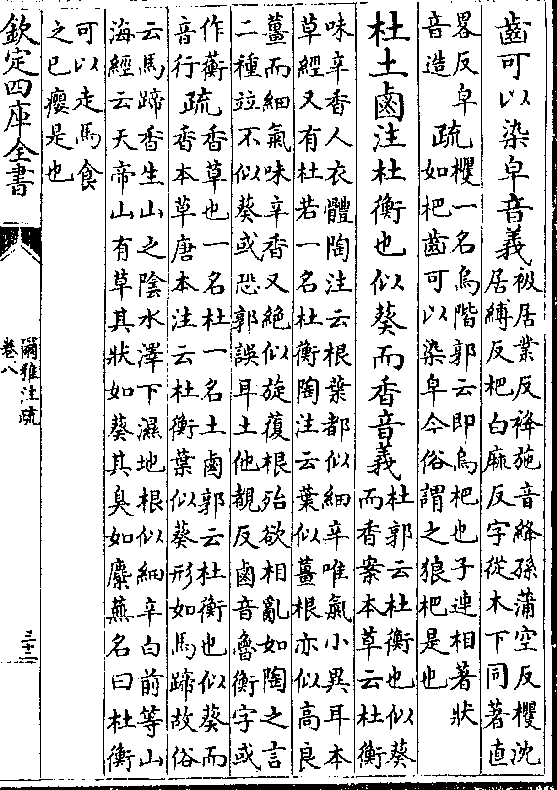 齒可以染皁音義
衱居業反袶施音絳孫蒲空反欔沈
居縛反杷白麻反字從木下同著直
畧反皁
音造
疏
欔一名烏階郭云即烏杷也子連相著狀
如杷齒可以染皁今俗謂之狼杷是也
杜土鹵注杜衡也似葵而香音義
杜郭云杜衡也似葵
而香案本草云杜衡
味辛香人衣體陶注云根葉都似細辛唯氣小異耳本
草經又有杜若一名杜衡陶注云葉似薑根亦似高良
薑而細氣味辛香又絕似旋葍根殆欲相亂如陶之言
二種竝不似葵或恐郭誤耳土他覩反鹵音魯衡字或
作蘅
音行
疏
香草也一名杜一名土鹵郭云杜衡也似葵而
香本草唐本注云杜衡葉似葵形如馬蹄故俗
云馬蹄香生山之陰水澤下濕地根似細辛白前等山
海經云天帝山有草其狀如葵其臭如蘪蕪名曰杜衡
可以走馬食
之已癭是也
欽定四庫全書
爾雅注疏
卷八
三十二